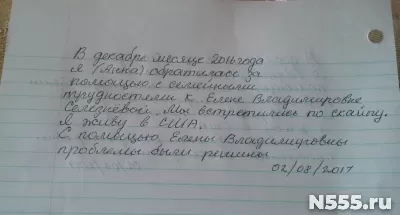 В декабре месяце 2016 года
я (Анна) обратилась за
помощью с семейными
трудностями к Елене Владимировне
Селезнёвой. Мы встретились по скайпу.
Я живу в США.
С помощью Елены Владимировны
проблемы были решены
02/08/2017
N555.ru